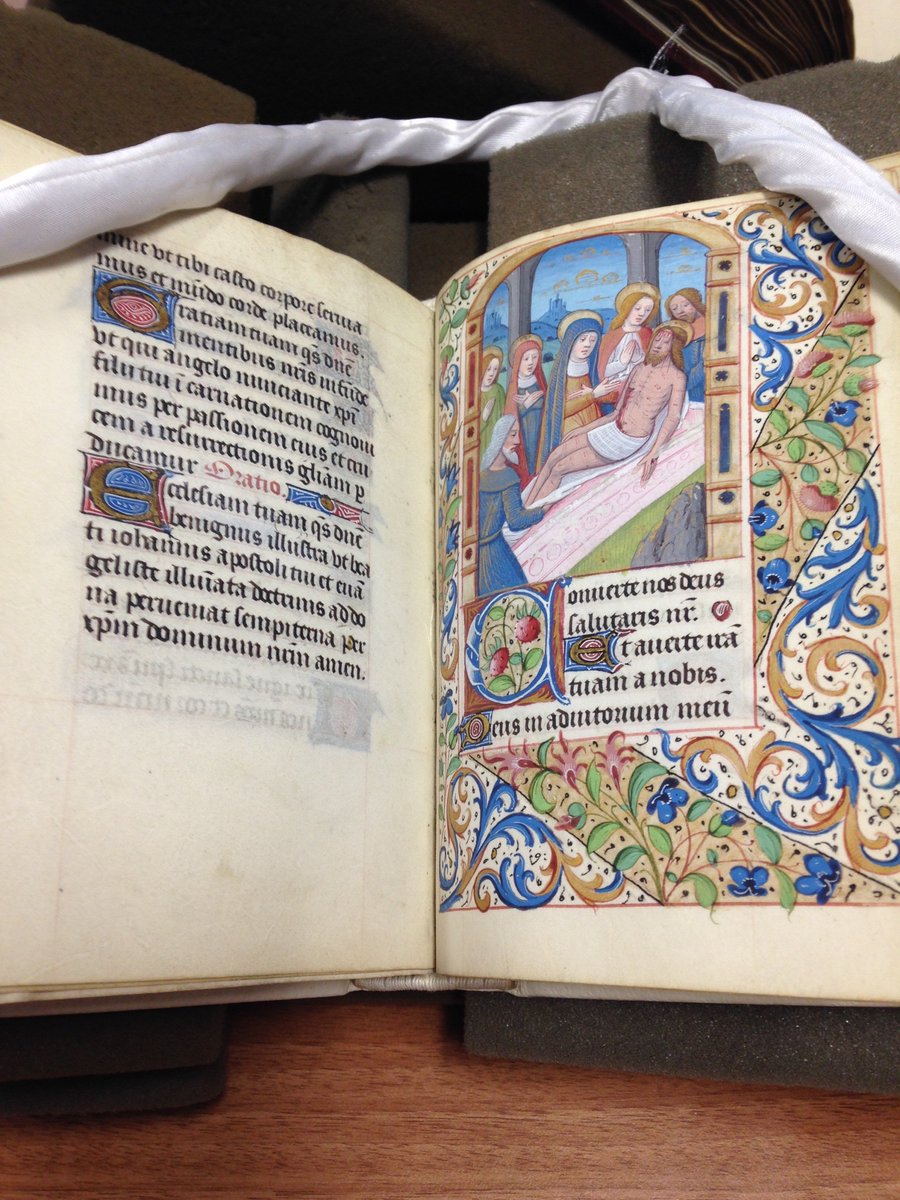 mine vt tibi casto corpore serua
mus et mūdo corde placeamus.
Gratiam tuam qs̄ dn̄e
mentibus nr̄is infūde
vt qui angelo nunciante xp̄i
filii tui ī carnationem cognoui
mus per passionem eius et cru
cem a resurrectionis glīam p
ducamur Oratio.
Ecclesiam tuam qs̄ dn̄e
benignus illustra vt bea
ti iohannis apostoli tui et euā
geliste illūnata doctrinis ad do
na perueniat sempiterna per
xp̄m dominum nr̄m amen.
Conuerte nos deus
salutaris nr̄.
Et auerte irā
tuam a nobis.
Deus in adiutorium meū